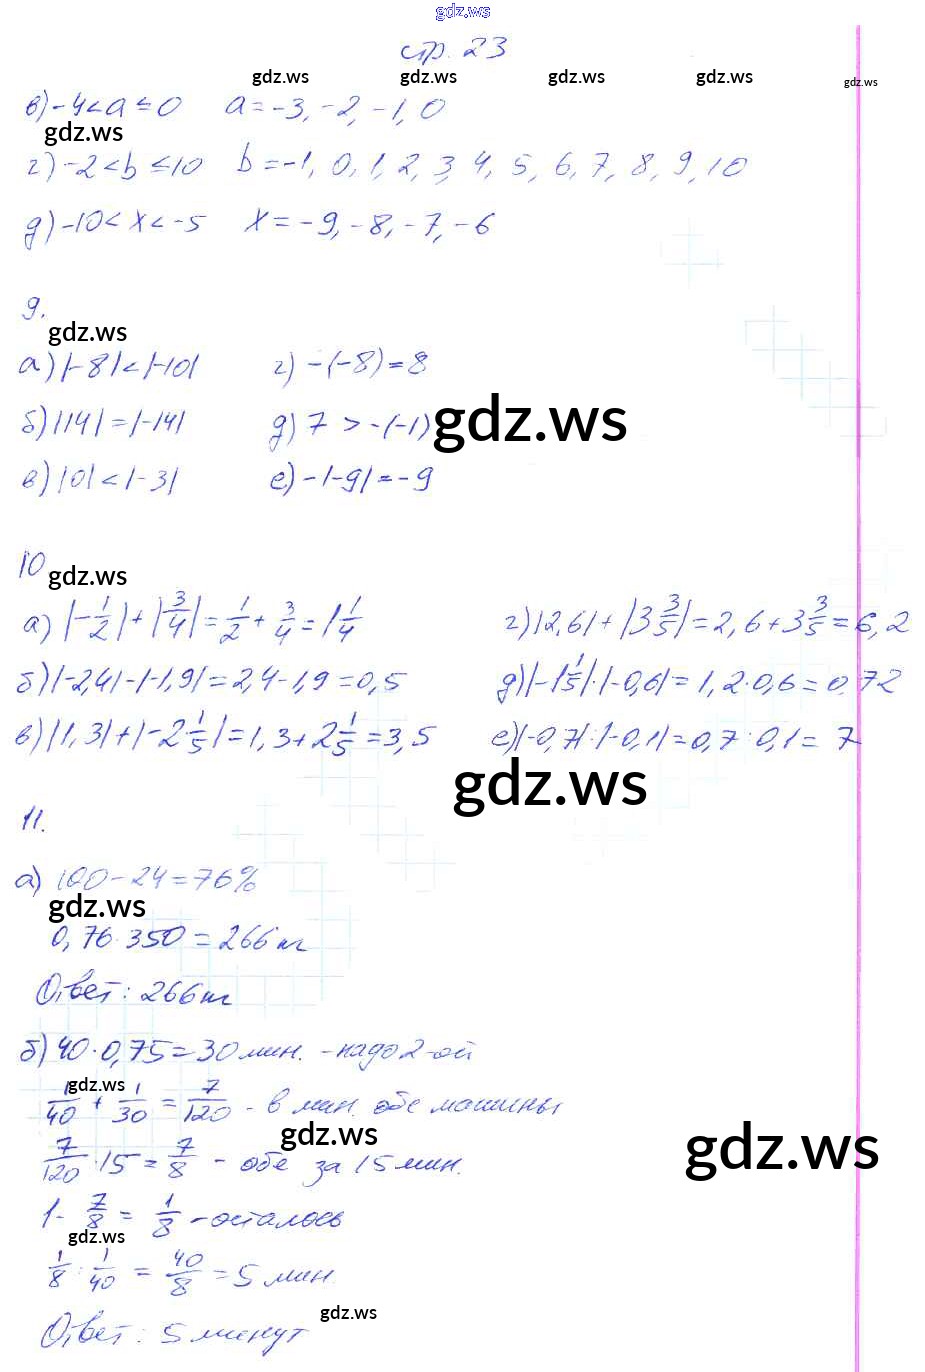 gdz.ws
стр. 23
gdz.ws gdz.ws gdz.ws gdz.ws gdz.ws
в) -4 < a ≤ 0 a = -3, -2, -1, 0
gdz.ws
г) -2 < b ≤ 10 b = -1, 0, 1, 2, 3, 4, 5, 6, 7, 8, 9, 10
д) -10 < x < -5 x = -9, -8, -7, -6
9.
gdz.ws
а) |-8| < |-10| г) -(-8) = 8
б) |14| = |-14| д) 7 > -(-1) gdz.ws
в) |0| < |-3| е) -|-9| = -9
10
gdz.ws
а) |-1/2| + |3/4| = 1/2 + 3/4 = 1 1/4 г) |2,6| + |3 3/5| = 2,6 + 3 3/5 = 6,2
б) |-2,4| - |-1,9| = 2,4 - 1,9 = 0,5 д) |-1 1/5| · |-0,6| = 1,2 · 0,6 = 0,72
в) |1,3| + |-2 1/5| = 1,3 + 2 1/5 = 3,5 е) |-0,7| : |-0,1| = 0,7 : 0,1 = 7
gdz.ws
11.
а) 100 - 24 = 76%
gdz.ws
0,76 · 350 = 266 кг
Ответ: 266 кг
б) 40 · 0,75 = 30 мин. - надо 2-ой
gdz.ws
1/40 + 1/30 = 7/120 - в мин. обе машины
gdz.ws gdz.ws
7/120 · 15 = 7/8 - обе за 15 мин.
1 - 7/8 = 1/8 - осталось
gdz.ws
1/8 : 1/40 = 40/8 = 5 мин
gdz.ws
Ответ: 5 минут